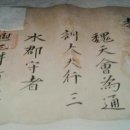 魏天會為通
訓大夫行三
水郡守者